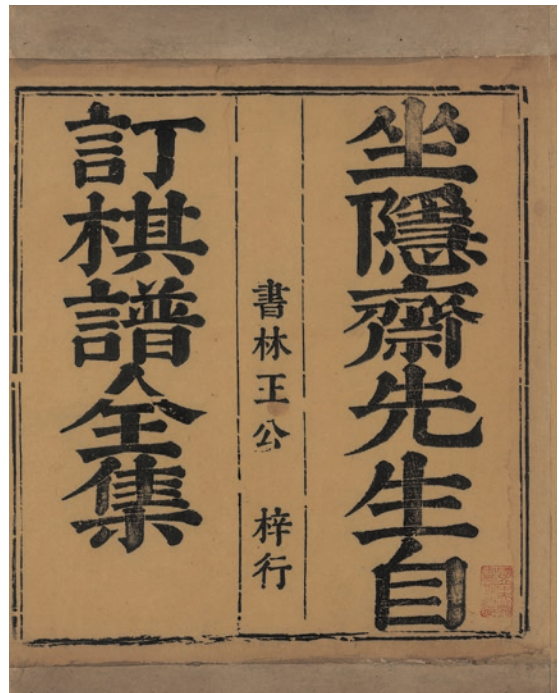 坐隱齋先生自
書林王公 梓行
訂棋譜全集